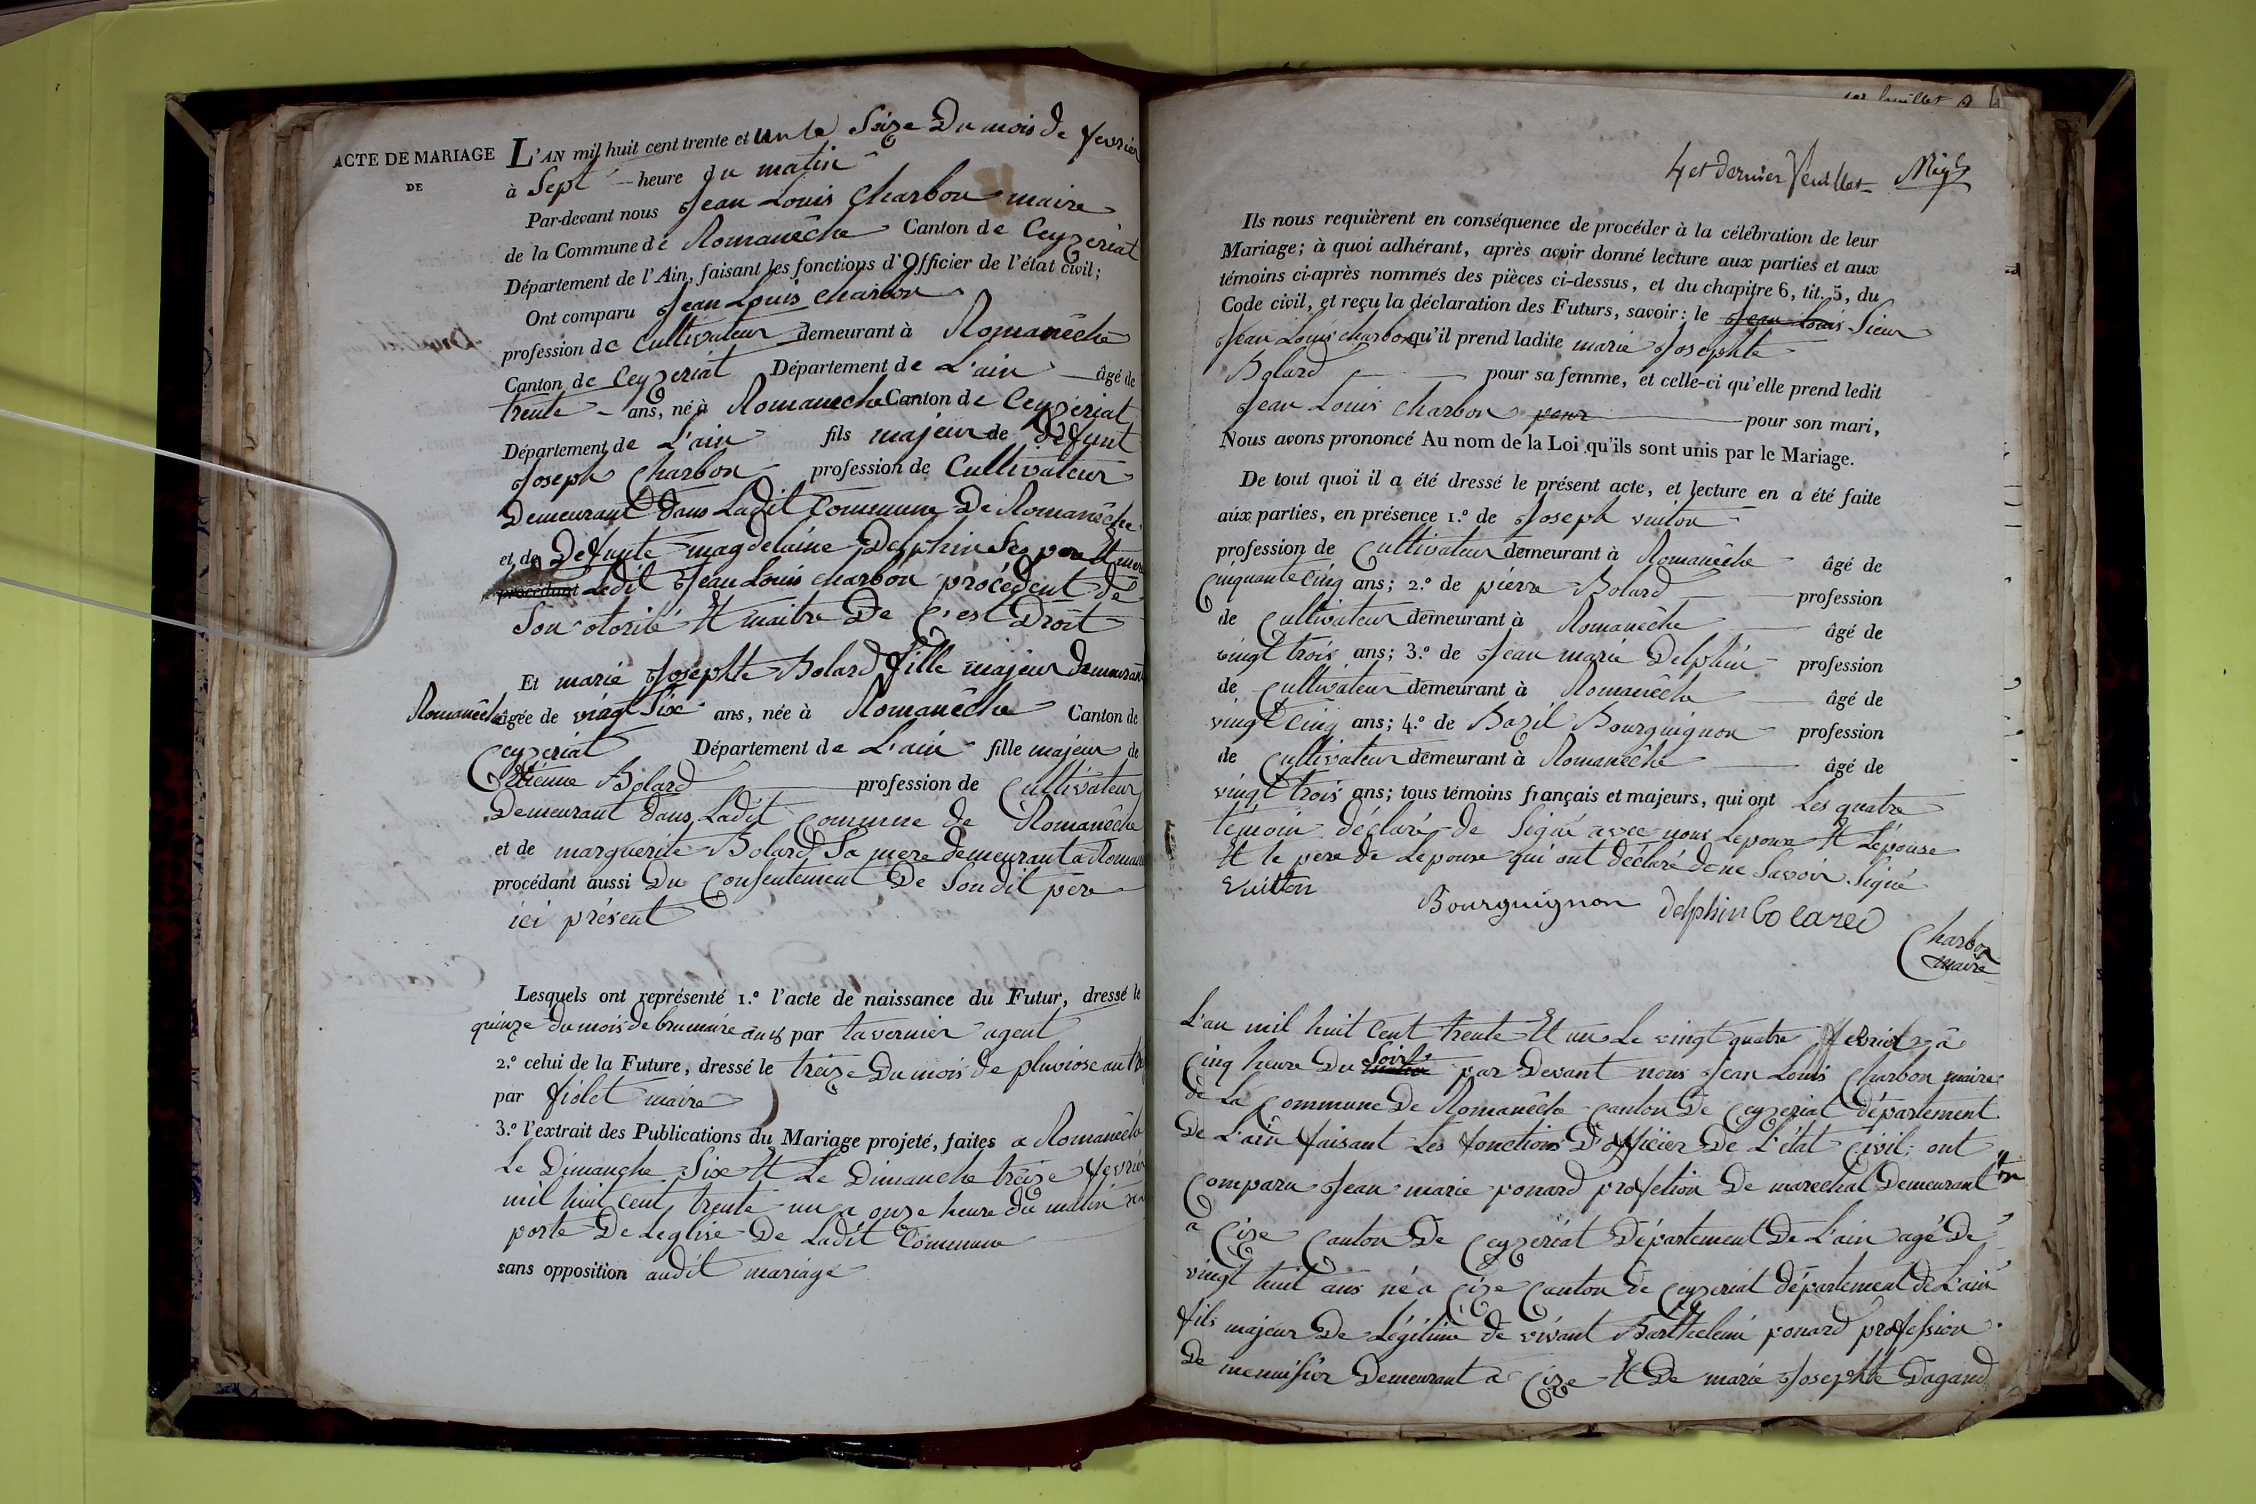 ACTE DE MARIAGE
DE
L'AN mil huit cent trente et un le Seize Du mois de fevrier
à Sept heure du matin
Par-devant nous Jean Louis Charbon maire
de la Commune de Romanêche Canton de Ceyzeriat
Département de l'Ain, faisant les fonctions d'Officier de l'état civil;
Ont comparu Jean Louis charbon
profession de Cultivateur demeurant à Romanêche
Canton de Ceyzeriat Département de L'ain âgé de
trente ans, né à Romaneche Canton de Ceyzériat
Département de L'ain fils majeur de Défunt
Joseph Charbon profession de Cultivateur
Demeurant dans Ladit Commune De Romanêche
et de Defunte magdelaine Delphin Ses pere Et mere
procédant Ledit Jean Louis charbon procédent de
Son otorité Et maitre De C'est Droit
Et marie Josephte Bolard fille majeur demeurant
Romanêche âgée de vingt Six ans, née à Romanêche Canton de
Ceyzeriat Département de L'ain fille majeur de
Etienne Bolard profession de Cultivateur
Demeurant dans Ladit Commune de Romanêche
et de marguerite Bolard Sa mere demeurant a
procédant aussi Du Consentement De Son dit père
ici présent
Lesquels ont représenté 1.º l'acte de naissance du Futur, dressé le
quinze du mois de brumaire an 9 par tavernier agent
2.º celui de la Future, dressé le treize Du mois de pluviose an
par fiolet maire
3.º l'extrait des Publications du Mariage projeté, faites a Romanêche
Le Dimanche Six Et Le Dimanche treize fevrier
mil huit cent trente un a onze heure du matin
porte De Leglise De Ladit Commune
sans opposition audit mariage
4 et dernier feuillet
Ils nous requièrent en conséquence de procéder à la célébration de leur
Mariage; à quoi adhérant, après avoir donné lecture aux parties et aux
témoins ci-après nommés des pièces ci-dessus, et du chapitre 6, tit. 5, du
Code civil, et reçu la déclaration des Futurs, savoir: le Jean Louis Sieur
Jean Louis charbon qu'il prend ladite marie Josephte
Bolard pour sa femme, et celle-ci qu'elle prend ledit
Jean Louis Charbon pour pour son mari,
Nous avons prononcé Au nom de la Loi qu'ils sont unis par le Mariage.
De tout quoi il a été dressé le présent acte, et lecture en a été faite
aux parties, en présence 1.º de Joseph vuiton
profession de Cultivateur demeurant à Romanêche âgé de
Cinquante Cinq ans; 2.º de pierre Bolard profession
de Cultivateur demeurant à Romanêche âgé de
vingt trois ans; 3.º de Jean marie Delphin profession
de Cultivateur demeurant à Romanêche âgé de
vingt Cinq ans; 4.º de Bazil Bourguignon profession
de Cultivateur demeurant à Romanêche âgé de
vingt trois ans; tous témoins français et majeurs, qui ont Les quatre
témoin déclaré de Signé avec nous Lepoux Et Lépouse
Et le pere de Lepouse qui ont déclaré de ne Savoir Signé
vuitton Bourguignon delphin bolard
Charbon
maire
L'an mil huit Cent trente Et un Le vingt quatre fevrier à
Cinq heure Du Soir par Devant nous Jean Louis Charbon maire
de La Commune De Romanêche Canton De Ceyzeriat département
De L'ain faisant Les fonctions D'officier De L'état Civil; ont
Comparu Jean marie ponard profetion De marechal Demeurant
a Cize Canton De Ceyzériat Département De L'ain agé De
vingt huit ans né a Cize Canton de Ceyzeriat département de L'ain
fils majeur De Légitime de vivant Barthelemi ponard profession
De menuisier Demeurant a Cize Et De marie Josephte Dagand